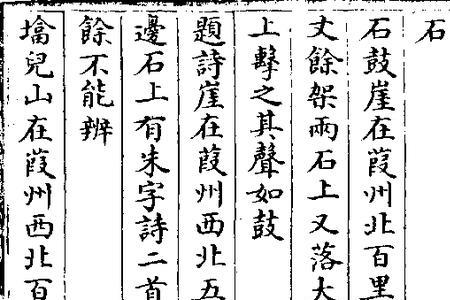 石
石鼓崖在葭州北百里
丈餘架兩石上又落大
上擊之其聲如鼓
題詩崖在葭州西北五
邊石上有朱字詩二首
餘不能辨
墖兒山在葭州西北百